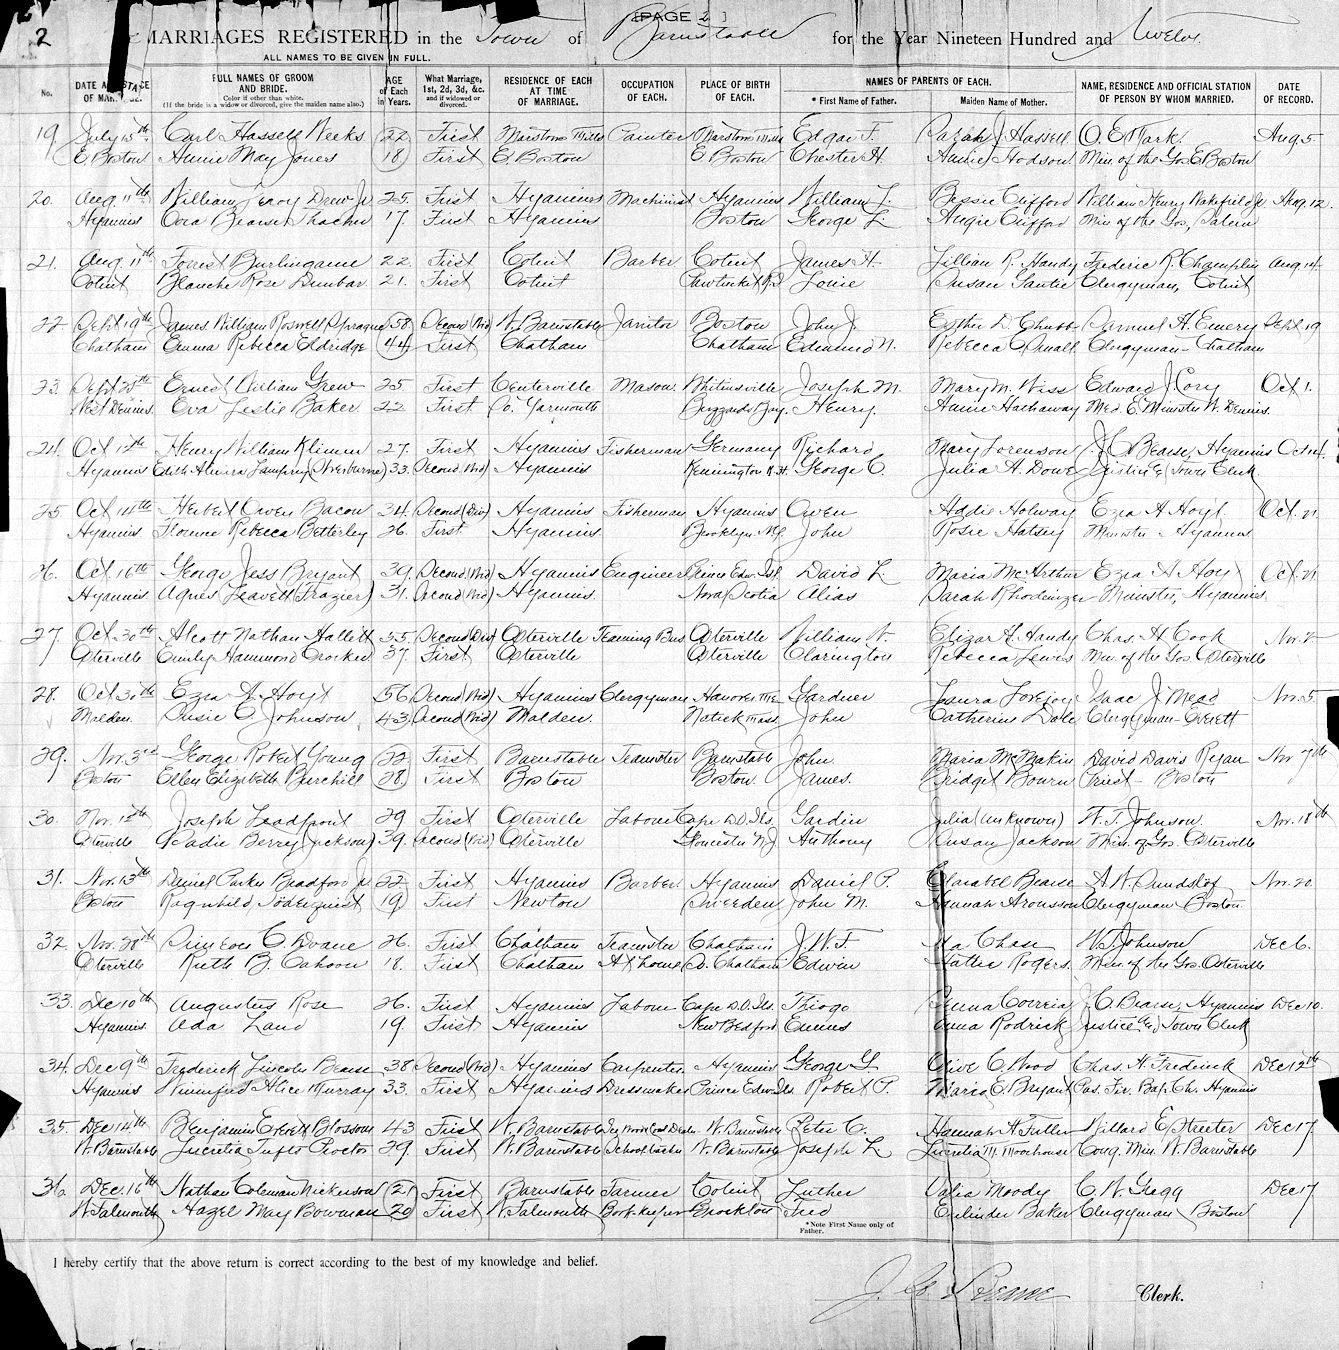 2 [PAGE 2]
MARRIAGES REGISTERED in the Town of Barnstable for the Year Nineteen Hundred and Twelve
ALL NAMES TO BE GIVEN IN FULL.
No. DATE AND PLACE OF MARRIAGE. FULL NAMES OF GROOM AND BRIDE. Color if other than white. (If the bride is a widow or divorced, give the maiden name also.) AGE of Each in Years. What Marriage, 1st, 2d, 3d, &c. and if widowed or divorced. RESIDENCE OF EACH AT TIME OF MARRIAGE. OCCUPATION OF EACH. PLACE OF BIRTH OF EACH. NAMES OF PARENTS OF EACH. * First Name of Father. Maiden Name of Mother. NAME, RESIDENCE AND OFFICIAL STATION OF PERSON BY WHOM MARRIED. DATE OF RECORD.
19. July 15th Carl Hassell Weeks 22 First Marstons Mills Painter Marstons Mills Edgar F. Sarah J. Hassell O. E. Mark Aug. 5
E Boston Annie May Jones 18 First E Boston E Boston Chester H. Annie Hodson Min. of the Gos. E Boston
20. Aug. 11th William Leroy Drew Jr 25 First Hyannis Machinist Hyannis William L. Bessie Clifford William Henry Wakefield Jr Aug. 12
Hyannis Cora Bearse Thacher 17 First Hyannis Boston George L Angie Clifford Min. of the Gos., Salem
21. Aug. 11th Forrest Burlingame 22 First Cotuit Barber Cotuit James H. Lillian R. Handy Frederic R. Champlin Aug. 14
Cotuit Blanche Rose Dunbar 21. First Cotuit Pawtucket R.I. Louie Susan Santie Clergyman, Cotuit
22 Sept 19th James William Roswell Sprague 58 Second (Wid) W. Barnstable Janitor Boston John J. Esther D. Chubb Samuel H. Emery Sept. 19
Chatham Emma Rebecca Eldridge 44 First Chatham Chatham Edmund N. Rebecca C. Small Clergyman - Chatham
23. Sept 28th Ernest William Grew 25 First Centerville Mason Whitinsville Joseph M. Mary M. Wiss Edward J. Cory Oct 1.
West Dennis Eva Leslie Baker 22 First So. Yarmouth Buzzards Bay. Henry. Annie Hathaway Med. E. Minister W. Dennis.
24. Oct 12th Henry William Klimm 27. First Hyannis Fisherman Germany Richard Mary Sorenson J. C. Bearse, Hyannis Oct 14.
Hyannis Edith Almira Lamprey 33. Second (Wid) Hyannis Kennington N.H. George C. Julia A. Dowe Justice & Town Clerk
25 Oct 14th Herbert Owen Bacon 34 Second (Div) Hyannis Fisherman Hyannis Owen Addie Holway Ezra A Hoyt Oct. 21
Hyannis Florence Rebecca Betterley 26. First Hyannis Brooklyn. N.Y. John Rosie Halsey Minister - Hyannis
26. Oct. 16th George Jess Bryant 39 Second (Wid) Hyannis Engineer Prince Edw. Isl. David L. Maria McArthur Ezra A Hoyt Oct. 21
Hyannis Agnes Leavett (Frazier) 31. Second (Wid) Hyannis. Nova Scotia Alias Sarah Rhodenizer Minister, Hyannis
27 Oct. 30th Alcott Nathan Hallett 55 Second (Div) Osterville Teaming Bus Osterville William N. Eliza A. Handy Chas. H Cook Nov. 2
Osterville Emily Hammond Crocker 37. First Osterville Osterville Clarington Rebecca Lewis Min. of the Gos. Osterville
28. Oct 30th Ezra A. Hoyt 56 Second (Wid) Hyannis Clergyman Hanover Me Gardner Laura Lovejoy Isaac J Mead Nov. 5
Malden. Susie C. Johnson 43 Second (Wid) Malden. Natick Mass John Catherine Dole Clergyman - Everett
29. Nov. 3rd George Robert Young 22 First Barnstable Teamster Barnstable John Maria McMakin David Davis Regan Nov 7th
Boston Ellen Elizabeth Burchill 28 First Boston Boston. James. Bridget Bourn Priest - Boston
30. Nov. 12th Joseph 29 First Osterville Labour Cape D.O. Ils. Gardin Julia (unknown) W. T. Johnson Nov. 18th
Osterville Sadie Berry (Jackson) 39. Second (Wid) Osterville Gloucester N.J Anthony Susan Jackson Min. of Gos. Osterville
31. Nov. 13th Daniel Parker Bradford Jr 22 First Hyannis Barber Hyannis Daniel P. Clarabel Bearse A. W. Sundelof Nov. 20
Boston Ragnhild Soderquist 19 First Newton Sweeden John M. Hannah Aronsson Clergyman Boston.
32. Nov. 28th Simeon C. Doane 26. First Chatham Teamster Chatham J. W. F. Ida Chase W. T. Johnson Dec 6.
Osterville Ruth B. Cahoon 18. First Chatham At home So. Chatham Edwin Hattie Rogers. Min. of the Gos. Osterville
33. Dec 10th Augustus Rose 26. First Hyannis Labour Cape D.O. Ils. Thiogo Anna Correia J. C. Bearse, Hyannis Dec 10.
Hyannis. Ada Land 19 First Hyannis New Bedford Ennus Anna Rodrick Justice & Town Clerk
34. Dec 9th Frederick Lincoln Bearse 38 Second (Wid) Hyannis Carpenter Hyannis George G Olive C. Wood Chas. H. Frederick Dec 12th
Hyannis Winnifred Alice Murray 33. First Hyannis Dressmaker Prince Edw. Ils. Robert P. Maria E. Bryant Pas. Fir. Bap. Ch. Hyannis
35. Dec 14th Benjamin Everett Blossom 43 First W. Barnstable W. Barnstable Peter C. Hannah H. Fuller Willard E. Streeter Dec 17.
W. Barnstable Lucretia Tufts Proctor 29. First W. Barnstable School teacher W. Barnstable Joseph L. Lucretia M. Moorhouse Cong. Min. W. Barnstable
36. Dec. 16th Nathan Coleman Nickerson 21 First Barnstable Farmer Cotuit Luther Valia Moody C. W. Gregg Dec 17
N. Falmouth Hazel May Bowman 20 First N. Falmouth Book-keeper Brockton Fred Erlinder Baker Clergyman Boston
*Note First Name only of Father.
I hereby certify that the above return is correct according to the best of my knowledge and belief.
J. C. Bearse Clerk.